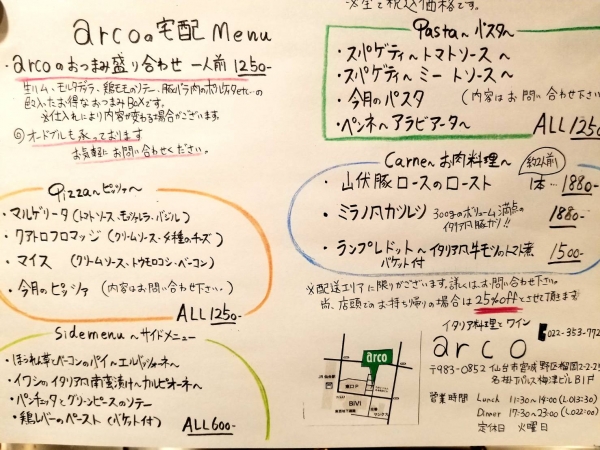 arcoの宅配 Menu
・arcoのおつまみ盛り合わせ 一人前 1250-
生ハム、モルタデラ、鶏モモのソテー、豚バラ肉のポルケタetc…の
詰入ったお得なおつまみBoxです。
※仕入れにより内容が変わる場合がございます。
◎オードブルも承っております
お気軽にお問い合わせください。
Pizza〜ピッツァ〜
・マルゲリータ(トマトソース・モッツァレラ・バジル)
・クアトロフロマッジ(クリームソース・4種のチーズ)
・マイス (クリームソース・トウモロコシ・ベーコン)
・今月のピッツァ (内容はお問い合わせ下さい。)
ALL1250-
Sidemenu〜サイドメニュー
・ほうれん草とベーコンのパイ〜エルバッツォーネ〜
・イワシのイタリア風南蛮漬け〜カルピオーネ〜
・パンチェッタとグリーンピースのソテー
・鶏レバーのペースト(バケット付)
ALL600-
※全て税込価格です。
Pasta〜パスタ〜
・スパゲティ〜トマトソース〜
・スパゲティ〜ミートソース〜
・今月のパスタ (内容はお問い合わせ下さい
・ペンネ〜アラビアータ〜
ALL1250
Carne〜お肉料理〜
約2人前
・山伏豚ロースのロースト 1本…1880-
・ミラノ風カツレツ 300gのボリューム満点のイタリア風豚カツ!! 1880-
・ランプレドット〜イタリア風牛モツのトマト煮 バケット付 1500-
※配送エリアに限りがございます。詳しくはお問い合わせ下さい。
尚、店頭でのお持ち帰りの場合は25%offとさせて頂きます
arco
JR仙台駅
東口
BIVI
イタリア料理とワイン
arco
022-353-772
〒983-0852 仙台市宮城野区榴岡2-2-25
名掛丁パルス梅津ビルB1F
営業時間 Lunch 11:30~14:00(LO13:30)
Dinner 17:30~23:00(LO22:00)
定休日 火曜日